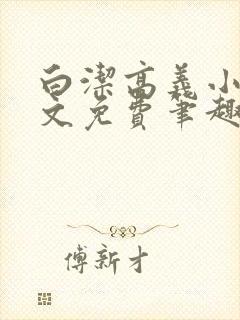 白潔高義小
文免費筆趣
傅新才